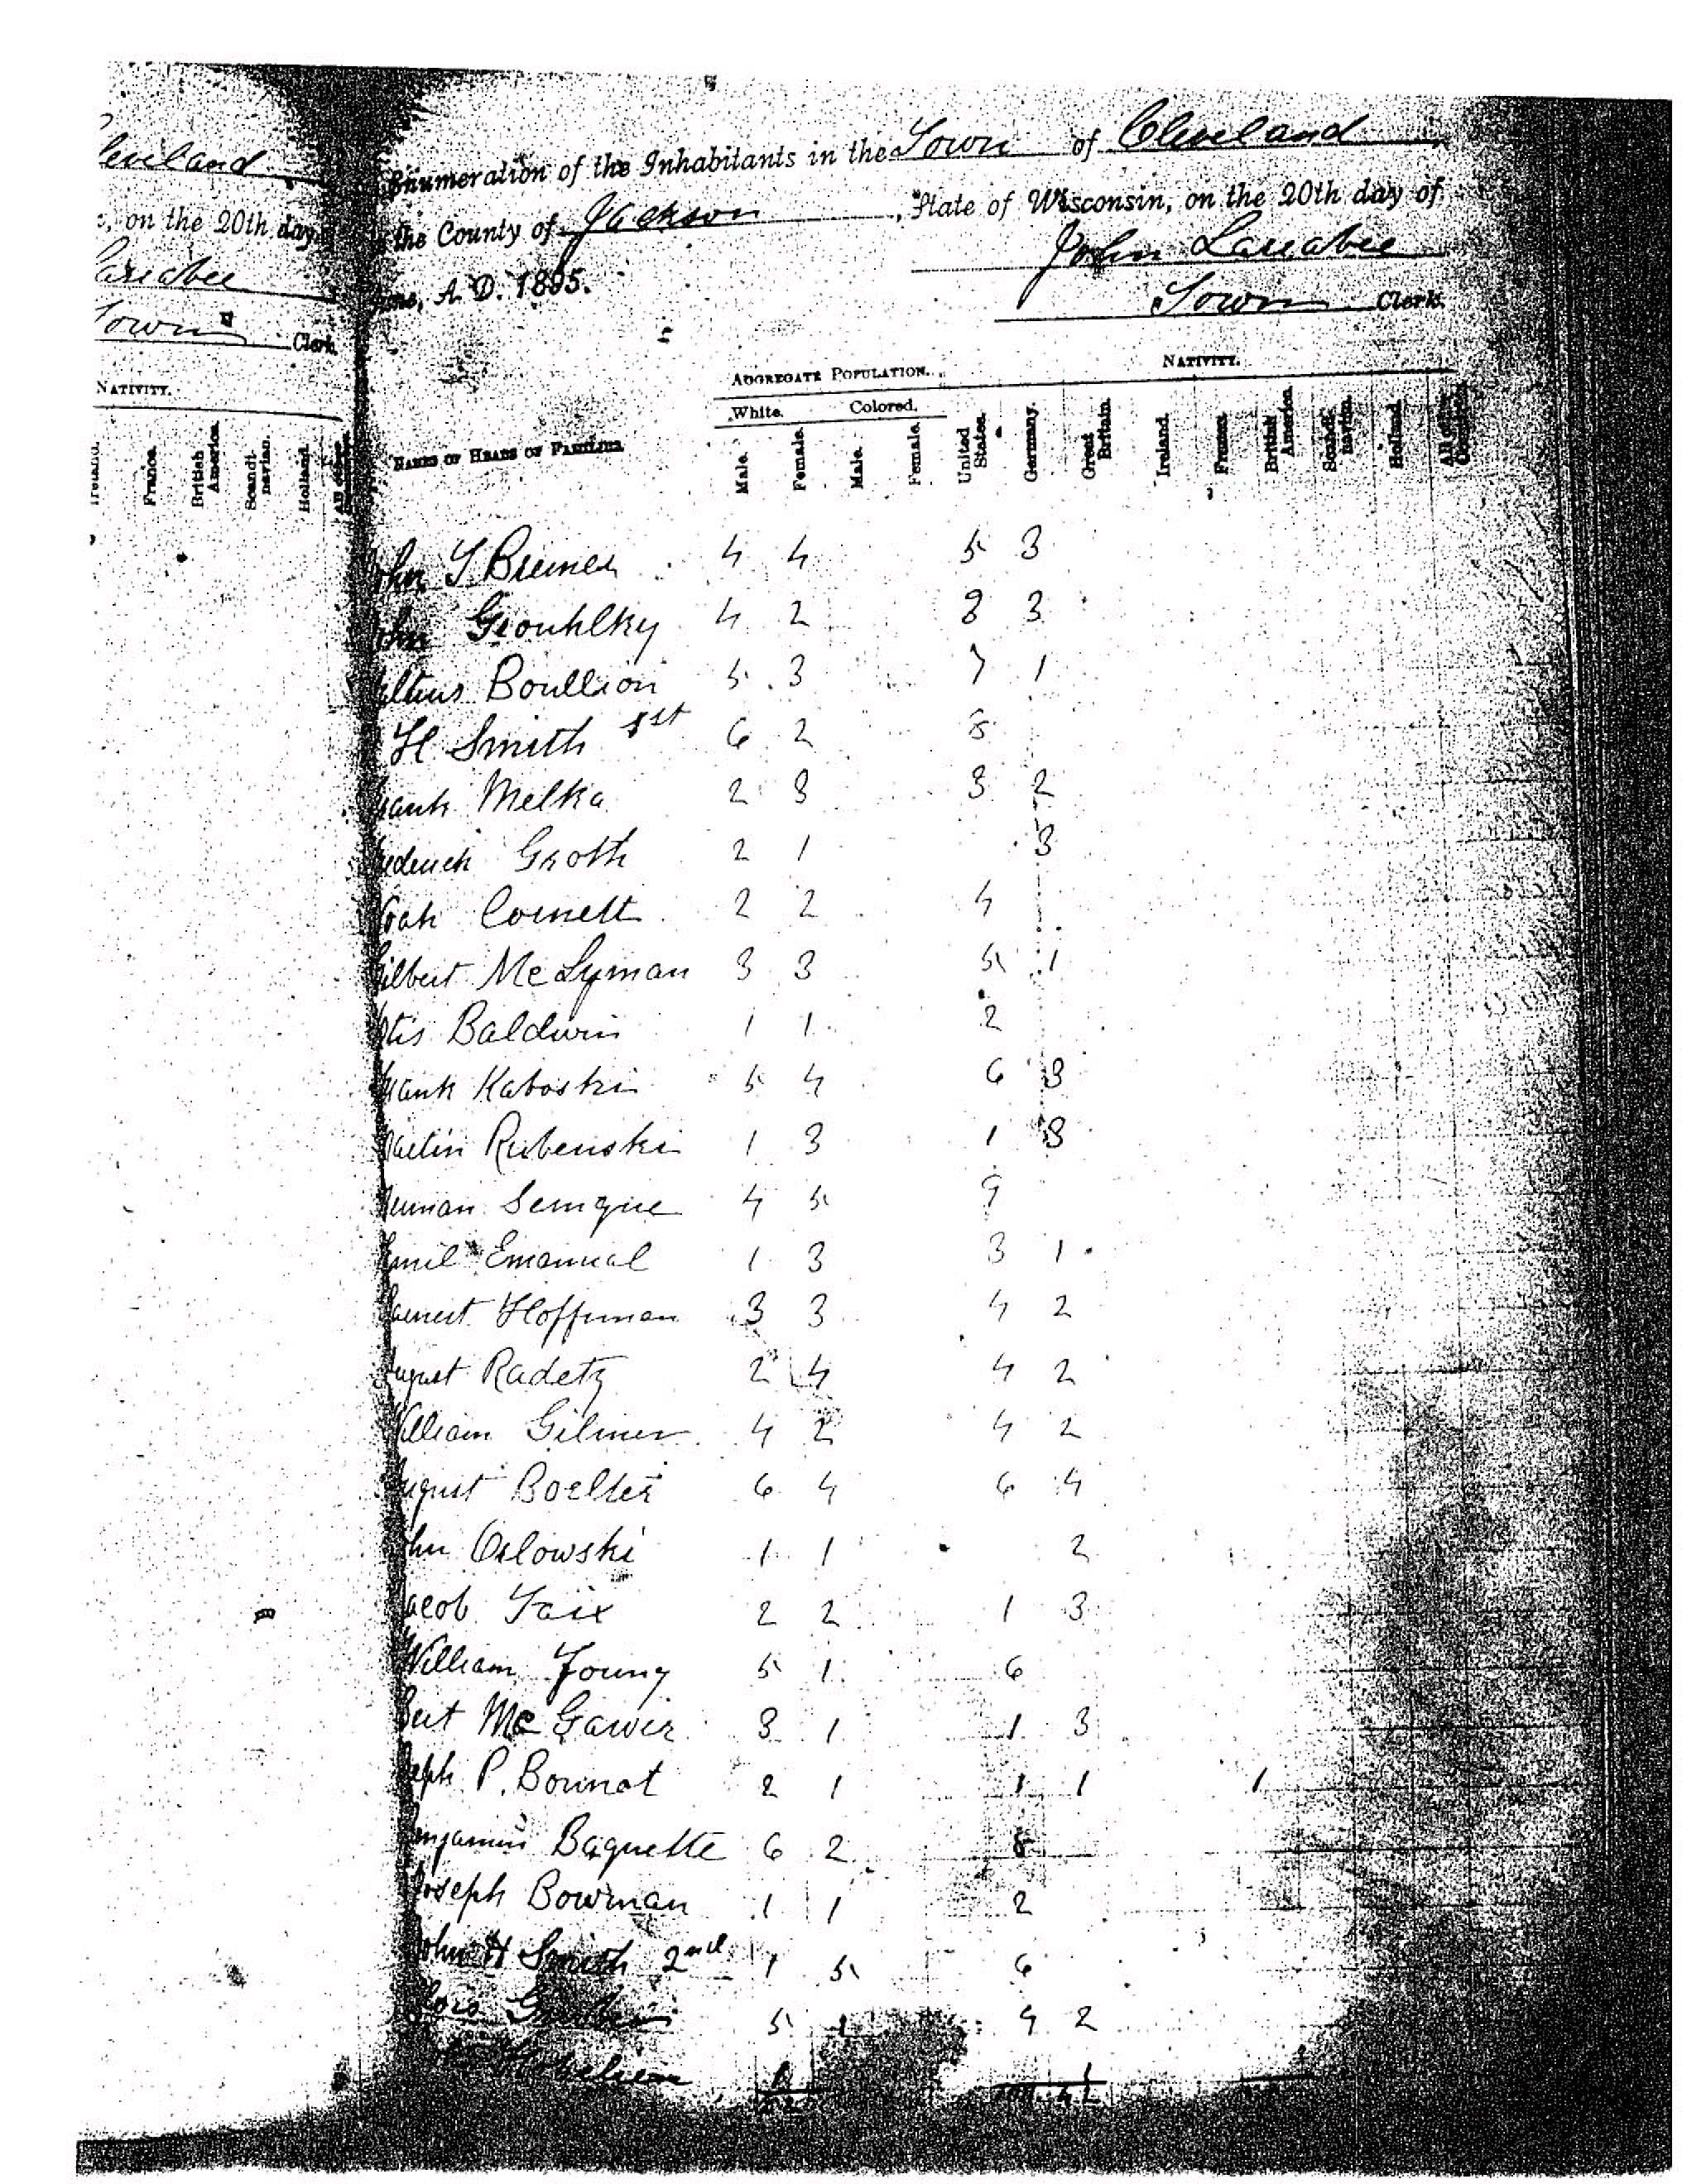 leveland
, on the 20th day
Larrabee
Town
Clerk.
NATIVITY.
Ireland. France. British America. Scandinavian. Holland.
Enumeration of the Inhabitants in the Town of Cleveland
the County of Jackson, State of Wisconsin, on the 20th day of
June, A. D. 1895.
John Larrabee
Town Clerk.
AGGREGATE POPULATION. NATIVITY.
White. Colored.
NAMES OF HEADS OF FAMILIES Male. Female. Male. Female. United States. Germany. Great Britain. Ireland. France. British America. Scandinavian. Holland. All other Countries.
ohn 4 4 5 3
ohn 4 2 3 3
Boullion 5 3 7 1
H Smith 1st 6 2 8
rank Melka 2 3 3 2
rederick Groth 2 1 3
Noah Cornett 2 2 4
Gilbert Mc Lyman 3 3 5 1
Otis Baldwin 1 1 2
Frank Kaboski 5 4 6 3
Martin Rubenski 1 3 1 3
Herman Semque 4 5 9
Emil Emanual 1 3 3 1
Earnest Hoffman 3 3 4 2
August Radetz 2 4 4 2
William Gilmer 4 2 4 2
August Boelter 6 4 6 4
ohn Orlowski 1 1 2
Jacob 2 2 1 3
William Young 5 1 6
Bert Mc 3 1 1 3
seph P. Bonnat 2 1 1 1 1
enjamin Baquette 6 2 8
Joseph Bowman 1 1 2
John H Smith 2nd 1 5 6
5 1 4 2
1 1